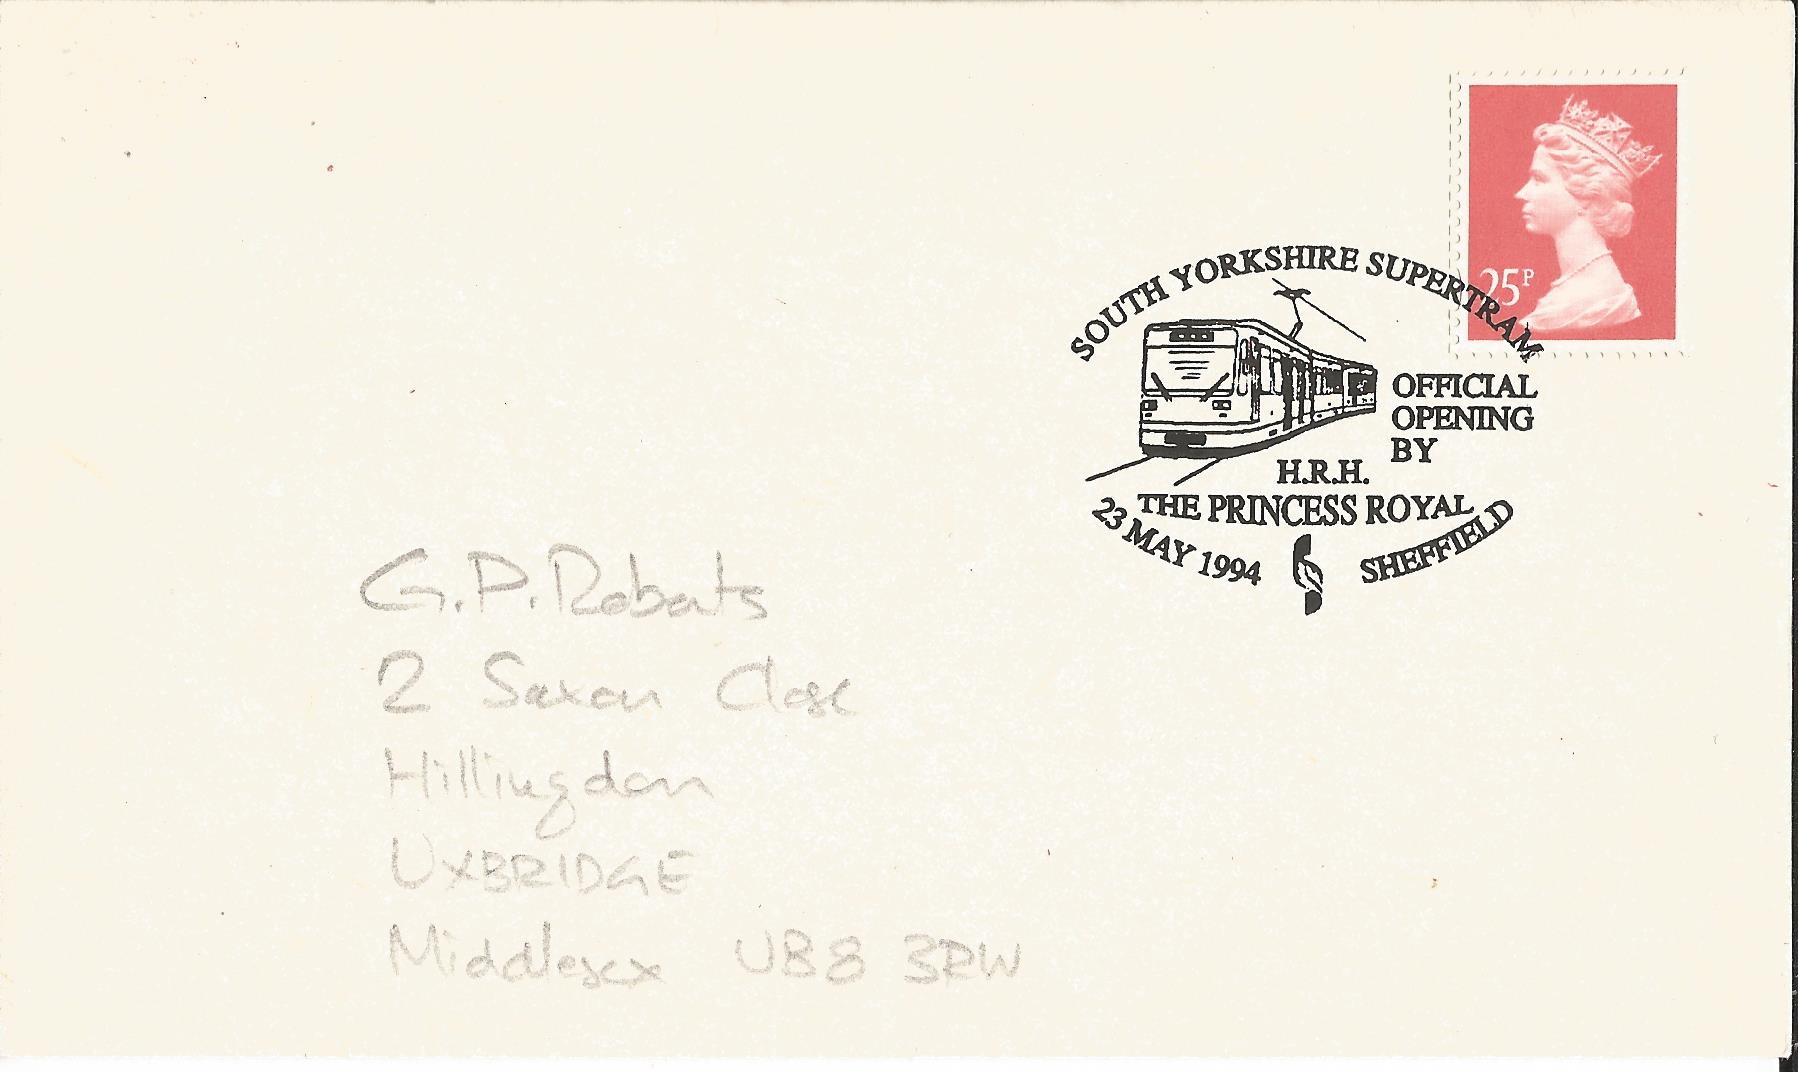 25P
SOUTH YORKSHIRE SUPERTRAM
OFFICIAL
OPENING
BY
H.R.H.
THE PRINCESS ROYAL
23 MAY 1994 SHEFFIELD
G.P. Roberts
2 Saxon Close
Hillingdon
UXBRIDGE
Middlesex UB8 3RW